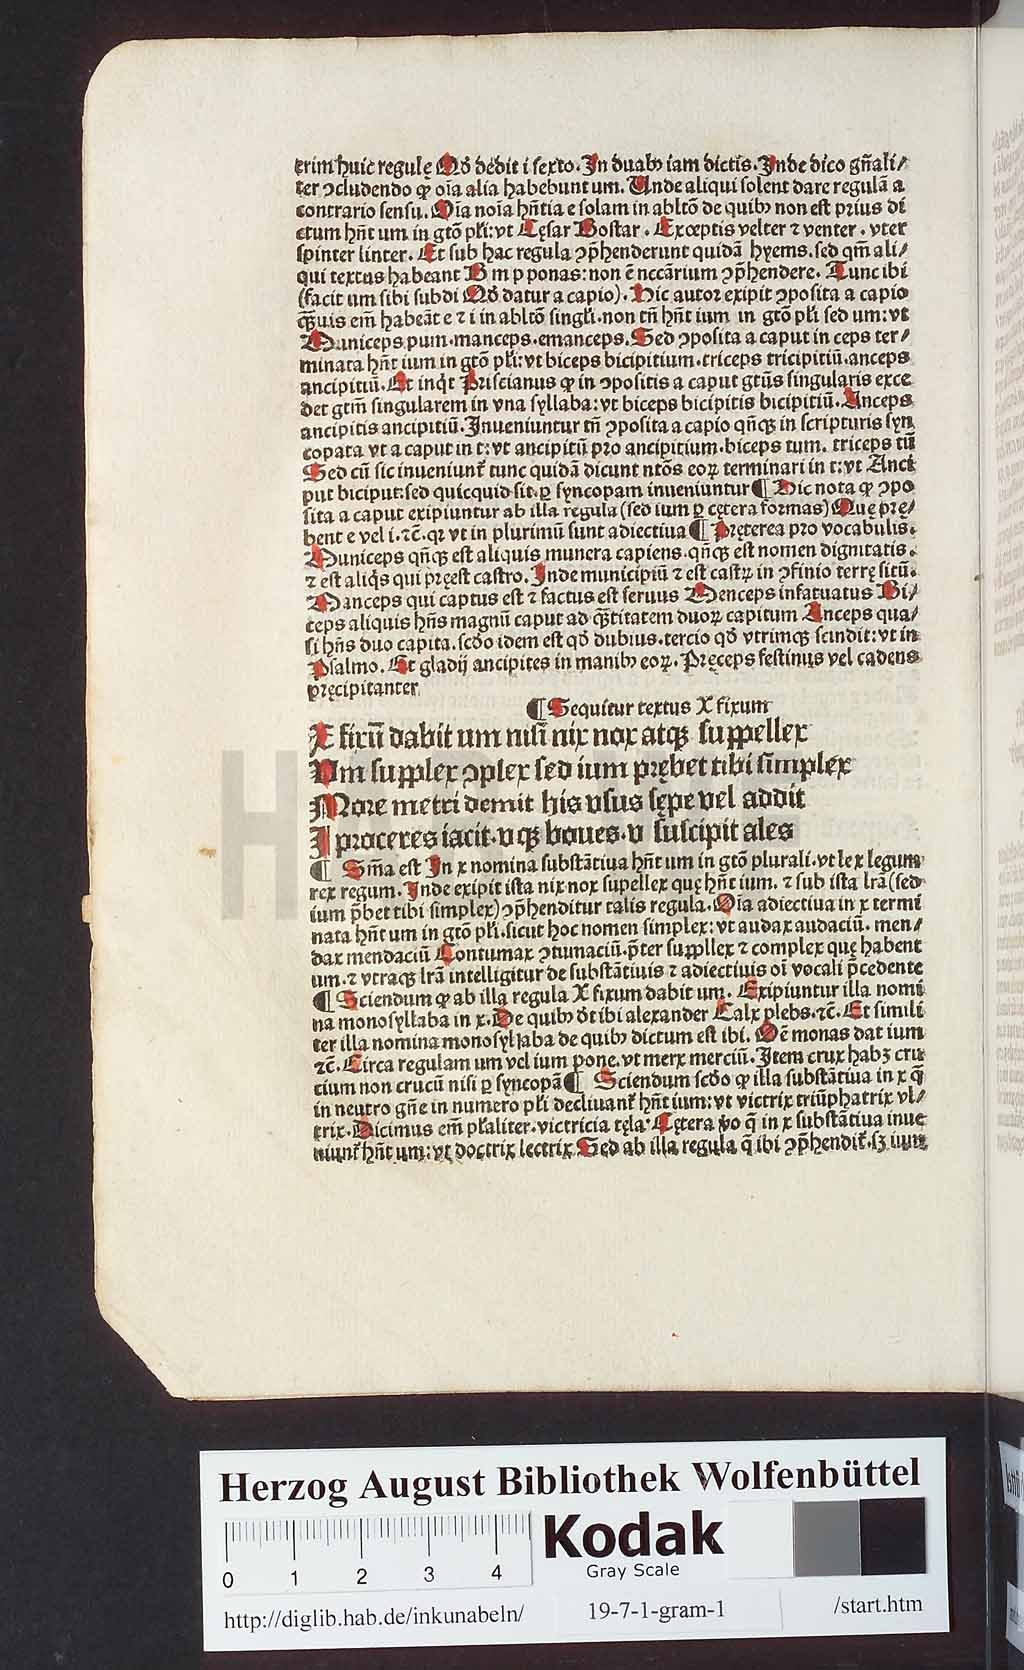 trim huic regulę Qd dedit i sexto. In duabꝰ iam dictis. Inde dico gñali/
ter ꝯcludendo ꝙ oīa alia habebunt um. Unde aliqui solent dare regulā a
contrario sensu. Oīa noīa hñtia e solam in abltō de quibꝰ non est prius di
ctum hñt um in gtō pl̄i: vt Cęsar Bostar. Exceptis velter ⁊ venter. vter
spinter linter. Et sub hac regula ꝯp̄henderunt quidā hyems. sed qm̄ ali/
qui textus habeant B m p ponas: non ē nccārium ꝯp̄hendere. Tunc ibi
(facit um sibi subdi Qd datur a capio). Hic autor exipit ꝯposita a capio
q̄uis em̄ habeāt e ⁊ i in abltō singl̄i. non tn̄ hñt ium in gtō pl̄i sed um: vt
Municeps pum. manceps. emanceps. Sed ꝯposita a caput in ceps ter/
minata hñt ium in gtō pl̄i: vt biceps bicipitium. triceps tricipitiū. anceps
ancipitiū. Et inqͥt Priscianus ꝙ in ꝯpositis a caput gtūs singularis exce
det gtm̄ singularem in vna syllaba: vt biceps bicipitis bicipitiū. Anceps
ancipitis ancipitiū. Inueniuntur tn̄ ꝯposita a capio qn̄qꝫ in scripturis syn
copata vt a caput in t: vt ancipitū pro ancipitium. biceps tum. triceps tū
Sed cū sic inueniunt̄ tunc quidā dicunt ntōs eoꝝ terminari in t: vt Anci
put biciput: sed quicquid sit. ꝑ syncopam inueniuntur ¶ Hic nota ꝙ ꝯpo
sita a caput exipiuntur ab illa regula (sed ium ꝑ cętera formas) Quę prę/
bent e vel i. ⁊c̄. qꝛ vt in plurimū sunt adiectiua ¶ Pręterea pro vocabulis.
Municeps qn̄qꝫ est aliquis munera capiens. qn̄qꝫ est nomen dignitatis.
⁊ est aliqͥs qui pręest castro. Inde municipiū ⁊ est castꝝ in ꝯfinio terrę situ.
Manceps qui captus est ⁊ factus est seruus Menceps infatuatus Bi/
ceps aliquis hñs magnū caput ad q̄titatem duoꝝ capitum Anceps qua/
si hñs duo capita. scdo idem est qd dubius. tercio qd vtrimqꝫ scindit: vt in
Psalmo. Et gladij ancipites in manibꝰ eoꝝ. Pręceps festinus vel cadens
pręcipitanter
¶ Sequitur textus X fixum
X fixū dabit um nisi nix nox atqꝫ suppellex
Um supplex ꝯplex sed ium prębet tibi simplex
More metri demit his vsus sępe vel addit
I proceres iacit. v qꝫ boues. v suscipit ales
¶ Sm̄a est In x nomina substātiua hñt um in gtō plurali. vt lex legum
rex regum. Inde exipit ista nix nox supellex quę hñt ium. ⁊ sub ista lr̄a (sed
ium p̄bet tibi simplex) ꝯp̄henditur talis regula. Oīa adiectiua in x termi
nata hñt um in gtō pl̄i. sicut hoc nomen simplex: vt audax audaciū. men/
dax mendaciū Contumax ꝯtumaciū. p̄ter suppllex ⁊ complex quę habent
um. ⁊ vtraqꝫ lr̄a intelligitur de substātiuis ⁊ adiectiuis oī vocali p̄cedente
¶ Sciendum ꝙ ab illa regula X fixum dabit um. Exipiuntur illa nomi
na monosyllaba in x. De quibꝰ dt ibi alexander Calx plebs. ⁊c̄. Et simili
ter illa nomina monosyllaba de quibꝰ dictum est ibi. Oē monas dat ium
⁊c̄. Circa regulam um vel ium pone. vt merx merciū. Item crux habꝫ cru
cium non crucū nisi ꝑ syncopā ¶ Sciendum scdo ꝙ illa substātiua in x q̄
in neutro gn̄e in numero pl̄i decliuant̄ hñt ium: vt victrix triūphatrix vl/
trix. Dicimus em̄ pl̄aliter. victricia tęla. Cętera vo q̄ in x substātiua inue
niunt̄ hñt um: vt doctrix lectrix. Sed ab illa regula q̄ ibi ꝯp̄hendit̄. sꝫ ium
Herzog August Bibliothek Wolfenbüttel
Kodak
Gray Scale
0 1 2 3 4
http://diglib.hab.de/inkunabeln/ 19-7-1-gram-1 /start.htm